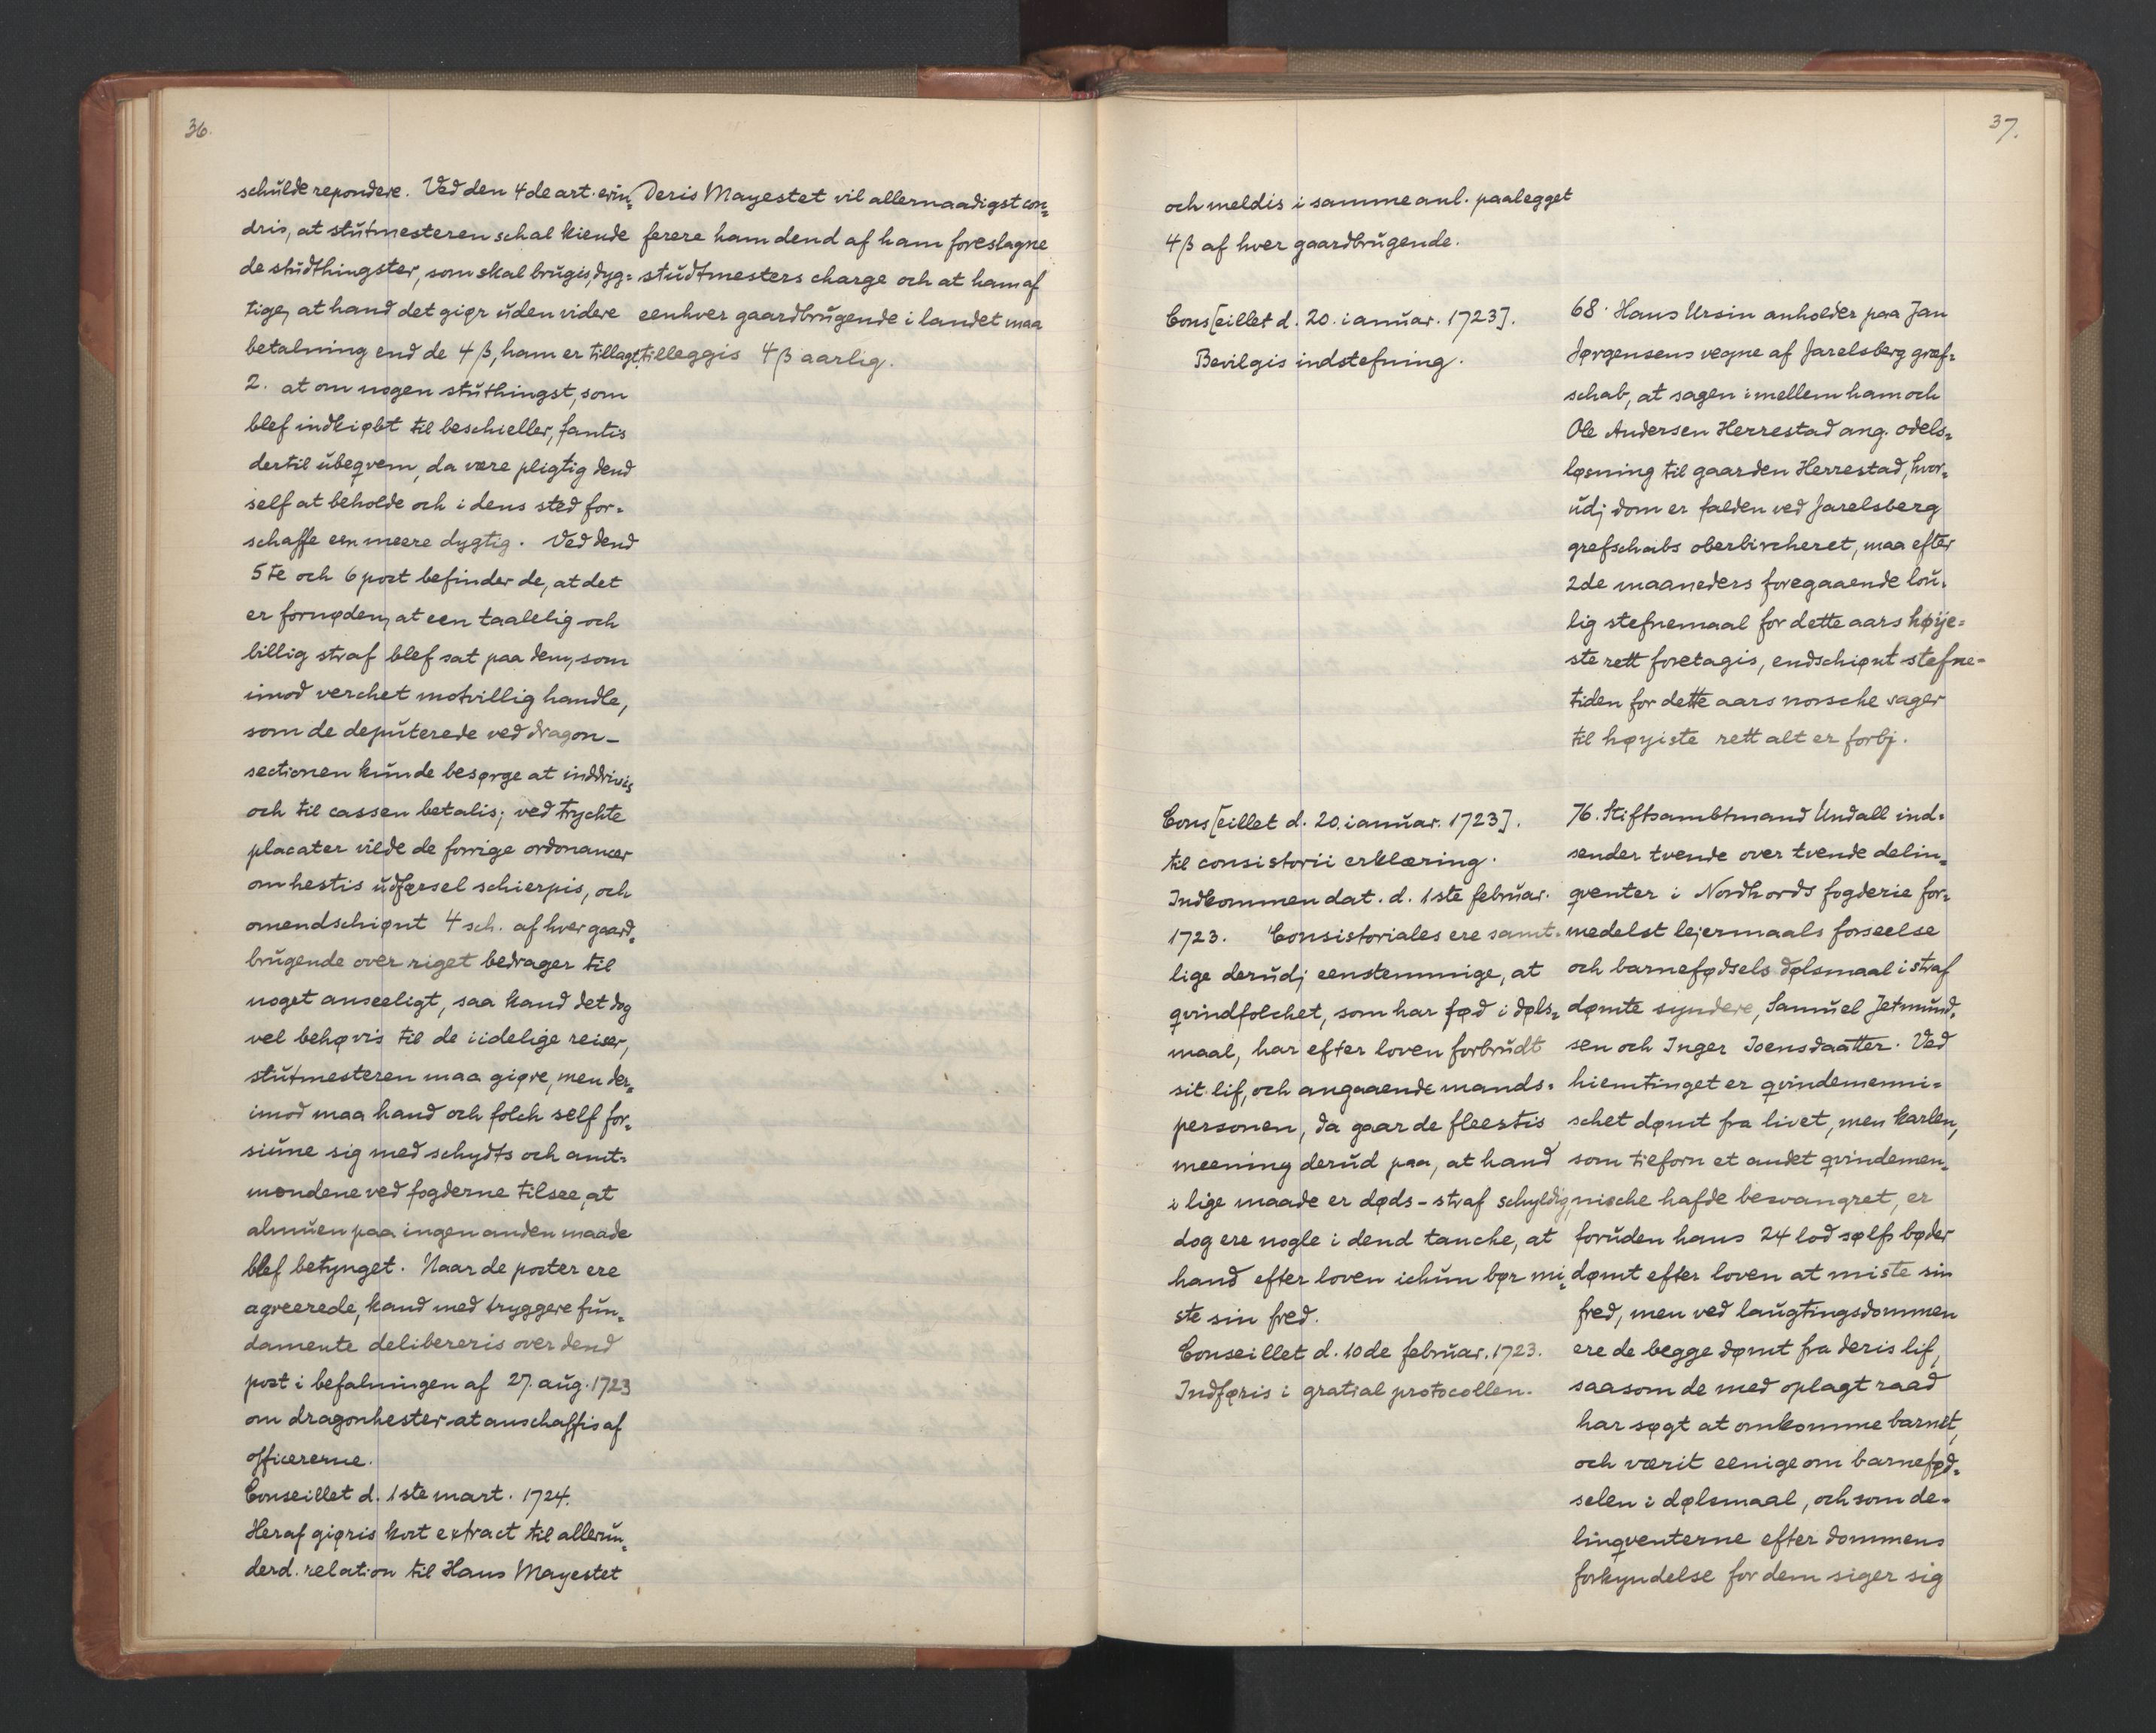 36.
schulde repondere. Ved den 4de art. erin=
dris, at stutmesteren schal kiende
de studthingster, som skal brugis, dyg=
tige, at hand det giør uden videre
betalning end de 4 β, ham er tillagt,
2. at om nogen stuthingst, som
blef indkiøbt til beschieller, fantis
dertil ubeqvem, da være pligtig dend
self at beholde och i dens sted for=
schaffe een meere dygtig. Ved dend
5te och 6 post befinder de, at det
er fornøden, at een taalelig och
billig straf blef sat paa dem, som
imod verchet motvillig handle,
som de deputerede ved dragon-
sectionen kunde besørge at inddrivis
och til cassen betalis; ved trychte
placater vilde de forrige ordonancer
om hestis udførsel schierpis, och
omendschiønt 4 sch. af hver gaard=
brugende over riget bedrager til
noget anseeligt, saa kand det dog
vel behøvis til de iidelige reiser,
stutmesteren maa giøre, men der=
imod maa hand och folch self for=
siune sig med schydts och amt=
mendene ved fogderne tilsee, at
almuen paa ingen anden maade
blef betynget. Naar de poster ere
agreerede, kand med tryggere fun=
damente delibereris over dend
post i befalningen af 27. aug. 1723
om dragonhester at anschaffis af
officererne.
Conseillet d. 1ste mart. 1724.
Heraf giøris kort extract til allerun=
derd. relation til Hans Mayestet
Deris Mayestet vil allernaadigst con=
ferere ham dend af ham foreslagne
studtmesters charge och at ham af
eenhver gaardbrugende i landet maa
tilleggis 4 β aarlig.
37.
och meldis i samme anl. paalegget
4 β af hver gaardbrugende.
Cons[eillet d. 20. ianuar. 1723].
Bevilgis indstefning.
68. Hans Ursin anholder paa Jan
Jørgensens vegne af Jarelsberg græf=
schab, at sagen imellem ham och
Ole Andersen Herrestad ang. odels=
løsning til gaarden Herrestad, hvor=
udj dom er falden ved Jarelsberg
grefschabs oberbircheret, maa efter
2de maaneders foregaaende lou=
lig stefnemaal for dette aars høije=
ste rett foretagis, endschiønt stefne=
tiden for dette aars norsche sager
til høyiste rett alt er forbj.
Cons[eillet d. 20. ianuar. 1723].
til consistorii erklæring.
Indkommen dat. d. 1ste februar.
1723. Consistoriales ere samt=
lige derudj eenstemmige, at
qvindfolchet, som har fød i døls=
maal, har efter loven forbrudt
sit lif, och angaaende mands=
personen, da gaar de fleestis
meening derud paa, at hand
i lige maade er døds-straf schyldig,
dog ere nogle i dend tanche, at
hand efter loven ichun bør mi=
ste sin fred.
Conseillet d. 10de februar. 1723.
Indføris i gratial protocollen.
76. Stiftsambtmand Undall ind=
sender tvende over tvende delin=
qventer i Nordhords fogderie for=
medelst lejermaals forseelse
och barnefødsels dølsmaal i straf
dømte syndere, Samuel Jetmund=
sen och Inger Joensdaatter. Ved
hiemtinget er qvindemenni=
schet dømt fra livet, men karlen,
som tieforn et andet qvindemen=
nische hafde besvangret, er
foruden hans 24 lod sølfs bøder
dømt efter loven at miste sin
fred, men ved laugtingsdommen
ere de begge dømt fra deris lif,
saasom de med oplagt raad
har søgt at omkomme barnet,
och værit eenige om barnefød=
selen i dølsmaal, och som de=
linqventerne efter dommens
forkyndelse for dem siger sig